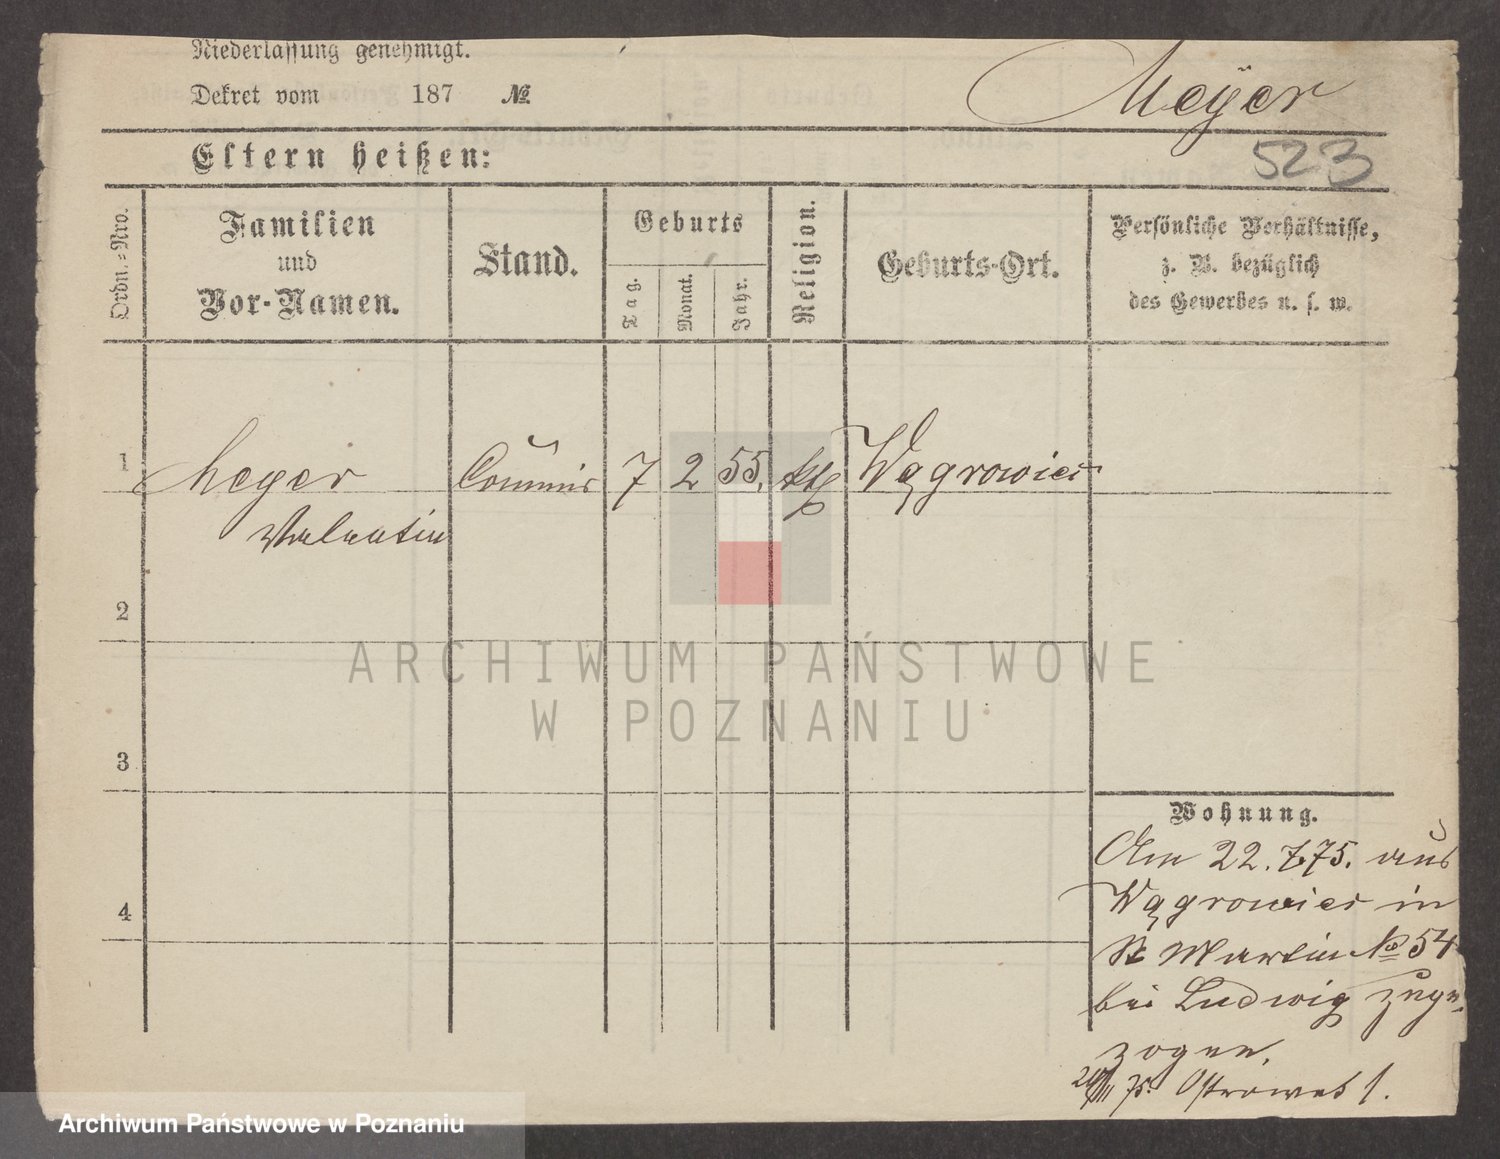 Niederlassung genehmigt.
Dekret vom 187 №
Meÿer
Eltern heißen:
523
Ordn.=Nro.
Familien
und
Vor-Namen.
Stand.
Geburts
Tag.
Monat.
Jahr.
Religion.
Geburts-Ort.
Persönliche Verhältnisse,
z. B. bezüglich
des Gewerbes u. s. w.
1 Meyer Commis 7 2 55. kth Wągrowiec
Valentin
2
3
4
Wohnung.
Am 22. 7.75. aus
Wągrowiec in
St Martin No 54
bei Ludwig zuge-
zogen.
75. Ostrowek 1.
ARCHIWUM PAŃSTWOWE
W POZNANIU
Archiwum Państwowe w Poznaniu